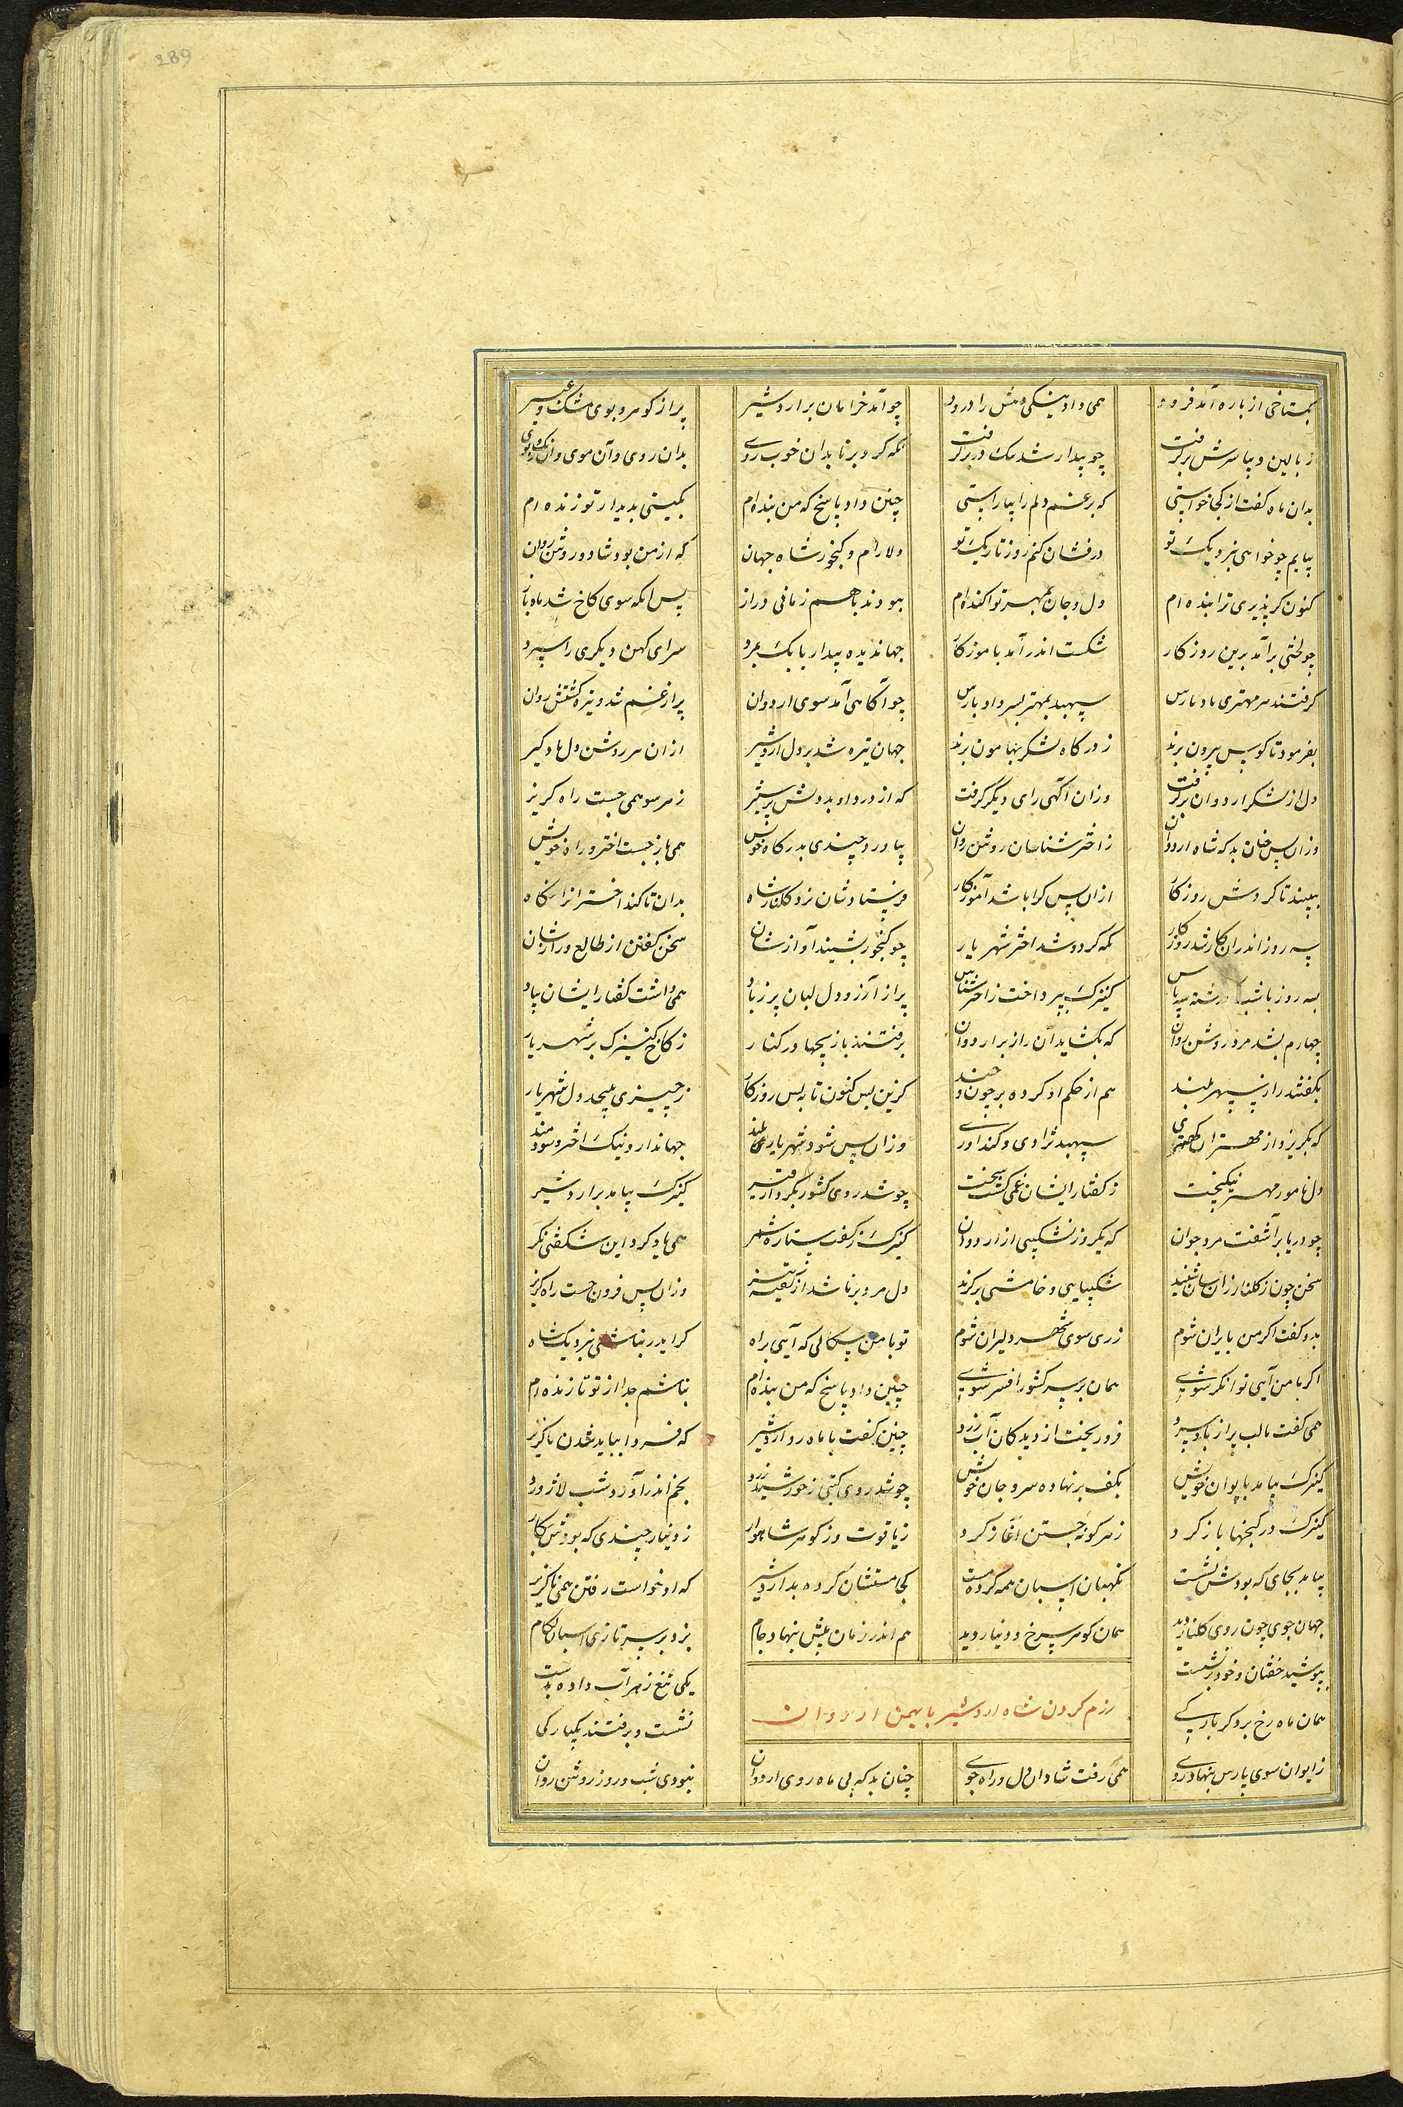 289
بگستاخی از باره آمد فرود همی داد نیکی دهش را درود چو آمد خرامان بر اردشیر پر از گوهر و بوی مشک و عبیر
ز بالین دیبا سرش برگرفت چو بیدار شد تنگ در بر گرفت نگه کرد برنا بدان خوب روی بدان روی و آن موی و آن رنگ و بوی
بدان ماه گفت از کجا خواستی که بر غم دلم را بیاراستی چنین داد پاسخ که من بنده‌ام بگیتی بدیدار تو زنده ام
بیایم چو خواهی بنزدیک تو درفشان کنم روز تاریک تو دلارام و گنجور شاه جهان که از من بود شاد و روشن روان
کنون گر پذیری ترا بنده ام دل و جان بمهر تو آکنده‌ام ببودند باهم زمانی دراز پس آنگه سوی کاخ شد ماه باز
چو لختی برآمد برین روزگار شکست اندر آمد باموزگار جهاندیده بیدار بابک بمرد سرای کهن دیگری را سپرد
گرفتند هر مهتری یاد پارس سپهبد بمهتر پسر داد پارس چو آگاهی آمد سوی اردوان پر از غم شد و تیره گشتش روان
بفرمود تا کوس بیرون برند ز درگاه لشکر بهامون برند جهان تیره شد بر دل اردشیر ازان مر روشن دل یادگیر
دل از لشکر اردوان برگرفت وزان آگهی رای دیگر گرفت که از درد او بد دلش پر ستیز ز هر سو همی جست راه گریز
وزان پس چنان بد که شاه اردوان ز اختر شناسان روشن روان بیاورد چندی بدرگاه خویش همی باز جست اختر و راه خویش
ببینند تا گردش روزگار ازان پس کرا باشد آموزگار فرستادشان نزد گلنار شاه بدان تا کند اختر ان را نگاه
سه روز اندران کار شد روزگار نگه کرده شد اختر شهریار چو گنجور بشنید آوازشان سخن گفتن از طالع و رازشان
سه روز تا شب گذشته سه پاس کنیزک بپرداخت ز اختر شناس پر از آرزو دل لبان پر ز باد همی داشت گفتار ایشان بیاد
چهارم بشد مرد روشن روان که بگشاید آن راز بر اردوان برفتند با زیجها در کنار ز کاخ کنیزک بر شهریار
بگفتند راز سپهر بلند هم از حکم او کرده بر چون و چند کزین پس کنون تا نه بس روزگار ز چیزی بپیچد دل شهریار
که بگریزد از مهتران کهتری سپهبد نژادی و کندآوری وزان پس شود شهریاری بلند جهاندار و نیک اختر و سودمند
دل نامور مهتر نیکبخت ز گفتار ایشان غمی گشت سخت چو شد روی کشور بکردار قیر کنیزک بیامد بر اردشیر
چو دریا برآشفت مرد جوان که یکروز نشکیبی از اردوان کنیزک ز گفت ستاره شمر همی یاد کرد این شگفتی نگر
سخن چون ز گلنار زانسان شنید شکیبایی و خامشی برگزید دل مرد برنا شد از گفته تیز وزان پس فزون جست راه گریز
بدو گفت اگر من بایران شوم ز ری سوی شهر دلیران شوم تو با من سگالی که آیی براه گر ایدر بباشی بنزدیک شاه
اگر با من آیی توانگر شوی همان بر سر کشور افسر شوی چنین داد پاسخ که من بنده‌ام نباشم جدا از تو تا زنده ام
همی گفت با لب پر از باد سرد فرو ریخت از دیدگان آب زرد چنین گفت با ماه رو اردشیر که فردا بباید شدن ناگزیر
کنیزک بیامد بایوان خویش بکف برنهاده سر و جان خویش چو شد روی گیتی ز خورشید زرد بخم اندر آورد شب لاژورد
کنیزک در گنجها باز کرد ز هر گونه جستن آغاز کرد ز یاقوت وز گوهر شاهوار ز دینار چندی که بودش بکار
بیامد بجای که بودش نشست نگهبان اسپان همه گرده مست کجا مستشان کرده بد اردشیر که او خواست رفتن همی ناگزیر
جهان جوی چون روی گلنار دید همان گوهر سرخ و دینار دید هم اندر زمان پیش بنهاد جام بزد بر سر تازی اسپان لگام
بپوشید خفتان و خود برنشست یکی تیغ زهر آب داده بدست
همان ماه رخ بر دگر بارگی نشست و برفتند یکبارگی
رزم کردن شاه اردشیر با بهمن اردوان
ز ایوان سوی پارس بنهاد روی همی رفت شادان دل و راه جوی چنان بد که بی ماه روی اردوان نبودی شب و روز روشن روان